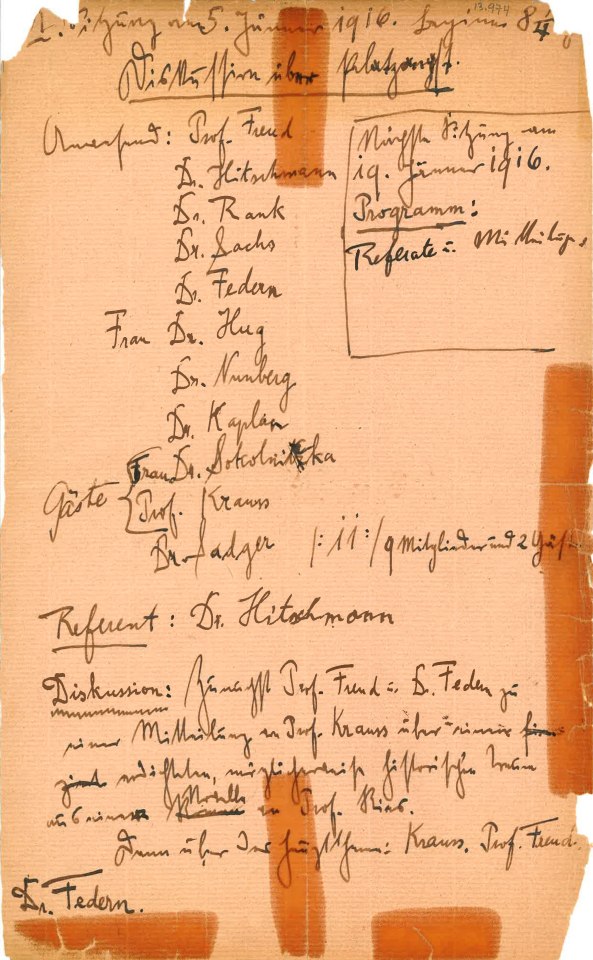 13.974
I. Sitzung am 5. Jänner 1916. Beginn 8 1/4
Diskussion über Platzangst.
Anwesend: Prof. Freud
Dr. Hitschmann
Dr. Rank
Dr. Sachs
Dr. Federn
Frau Dr. Hug
Dr. Nunberg
Dr. Kaplan
Gäste { Frau Dr. Sokolnitzka
Prof. Krauss
Dr. Sadger |: 11 :| 9 Mitglieder und 2 Gäste
Nächste Sitzung am
19. Jänner 1916.
Programm:
Referate u. Mitteilungen
Referent: Dr. Hitschmann
Diskussion: Zunächst Prof. Freud u. Dr. Federn zu
einer Mitteilung von Prof. Krauss über einen
erdichteten, möglicherweise historischen Traum
aus einer Novelle von Prof. Ries.
Dann über das Hauptthema: Krauss. Prof. Freud.
Dr. Federn.